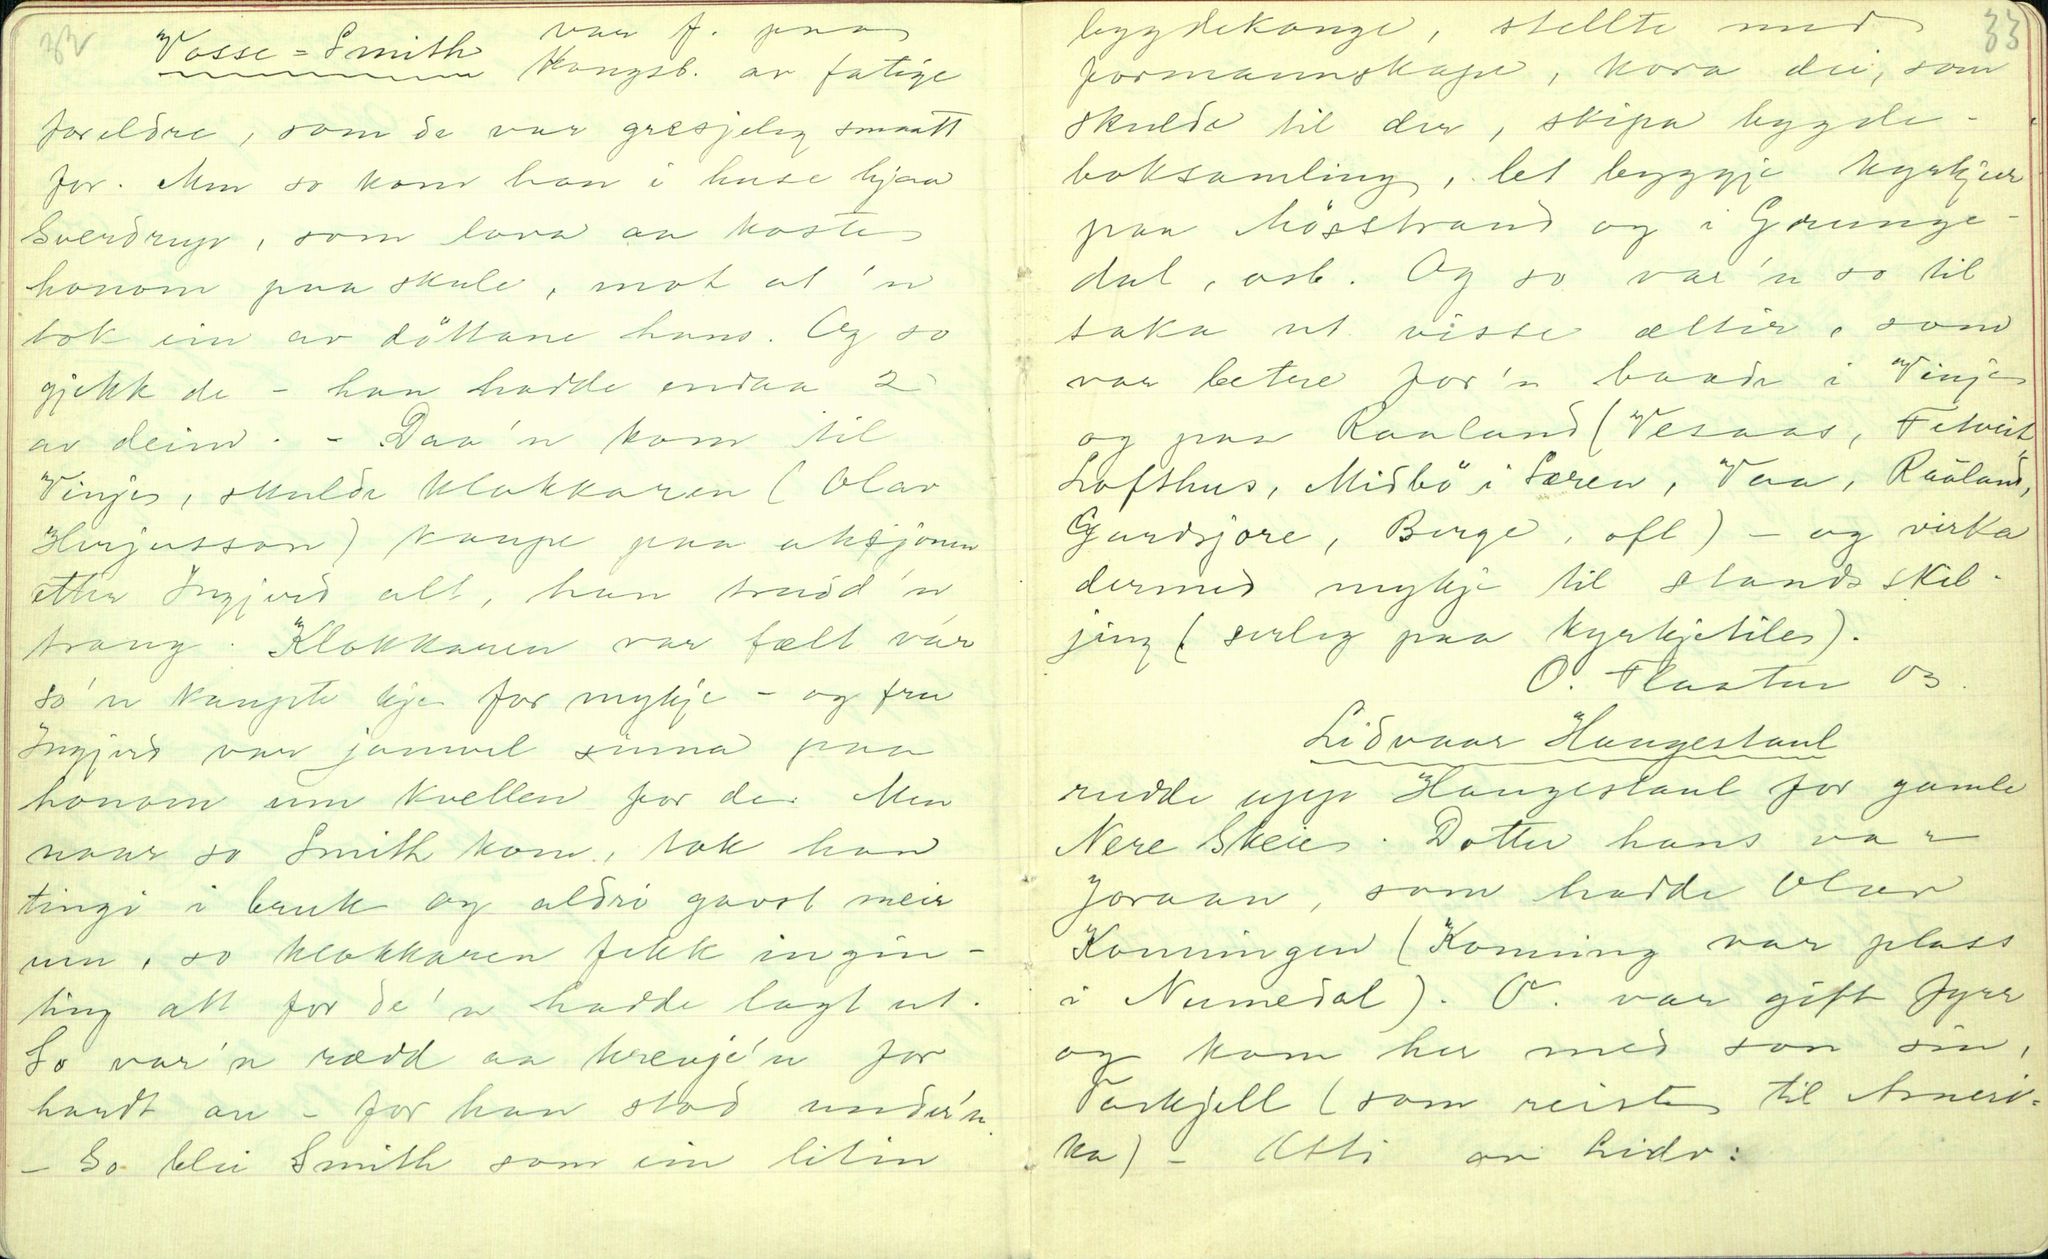 32
Vosse-Smith var f. paa
Kongsb. av fatige
foreldre, som de var gresjeleg smaatt
for. Men so kom han i huse hjaa
Sverdrup, som lova aa koste
honom paa skule, mot at'n
tok ein av döttane hans. Og so
gjekk de - han hadde endaa 2
av deim. - Daa'n kom til
Vinje, skulde klokkaren (Olav
Herjusson) kaupe paa auksjonen
etter Ingjerd alt, han
trong. Klokkaren var fælt var
so'n kaupte kje for mykje - og fru
Ingjerd var jamvel sinna paa
honom um kvellen for de. Men
naar so Smith kom, tok han
tingi i bruk og aldri gavst meir
um, so klokkaren fekk ingin-
ting att for de'n hadde lagt ut.
So var'n rædd aa krevje'n for
hardt an - for han stod under'n.
- So blei Smith som ein litin
33
bygdekonge, stellte med
formannskape, kora dei, som
skulde til der, skipa bygde-
boksamling, let byggje kyrkjur
paa Mösstrand og i Grunge-
dal, osb. Og so var'n so til
taka ut visse ættir, som
var betre for'n baade i Vinje
og paa Rauland (Vesaas,
Lofthus, Midbö i Særen, Vaa, Raaland,
Gardsjore, Berge, ofl) - og virka
dermed mykje til stands skil-
jing (serleg paa kyrkjetiler).
O. Flaatun os.
Lidvaar Haugestaul
rudde upp Haugestaul for gamle
Nere Skeie. Dotter hans var
Joraan, som hadde Olav
Konningen (Konning var plass
i Numedal). O. var gift fyrr
og kom her med son sin,
Torkjell (som reiste til Ameri-
ka) - Ætti av Lidv: